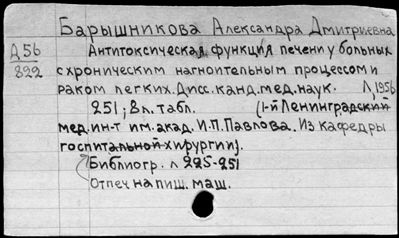 Барышникова Александра Дмитриевна
Д56
822
Антитоксическая функция печени у больных
с хроническим нагноительным процессом и
раком легких. Дисс. канд. мед. наук. Л, 1956
251; 8 л. табл. (1-й Ленинградский
мед. ин-т им. акад. И.П. Павлова. Из кафедры
госпитальной хирургии).
Библиогр. л 225-251
Отпеч на пиш. маш.